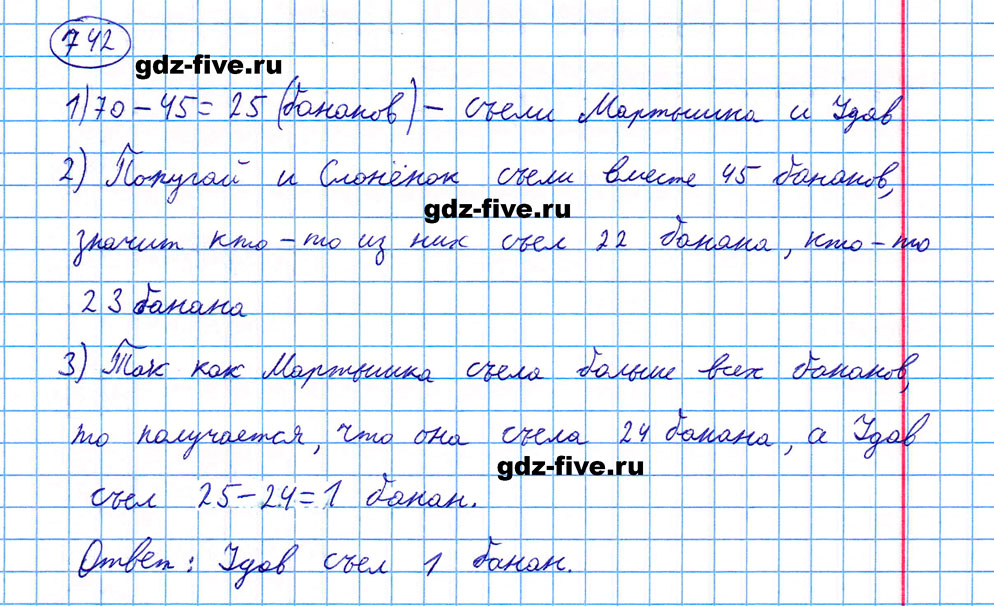 742
gdz-five.ru
1) 70 - 45 = 25 (бананов) - съели Мартышка и Удав
2) Попугай и Слонёнок съели вместе 45 бананов,
gdz-five.ru
значит кто-то из них съел 22 банана, кто-то
23 банана
3) Так как Мартышка съела больше всех бананов,
то получается, что она съела 24 банана, а Удав
gdz-five.ru
съел 25-24=1 банан.
Ответ: Удав съел 1 банан.